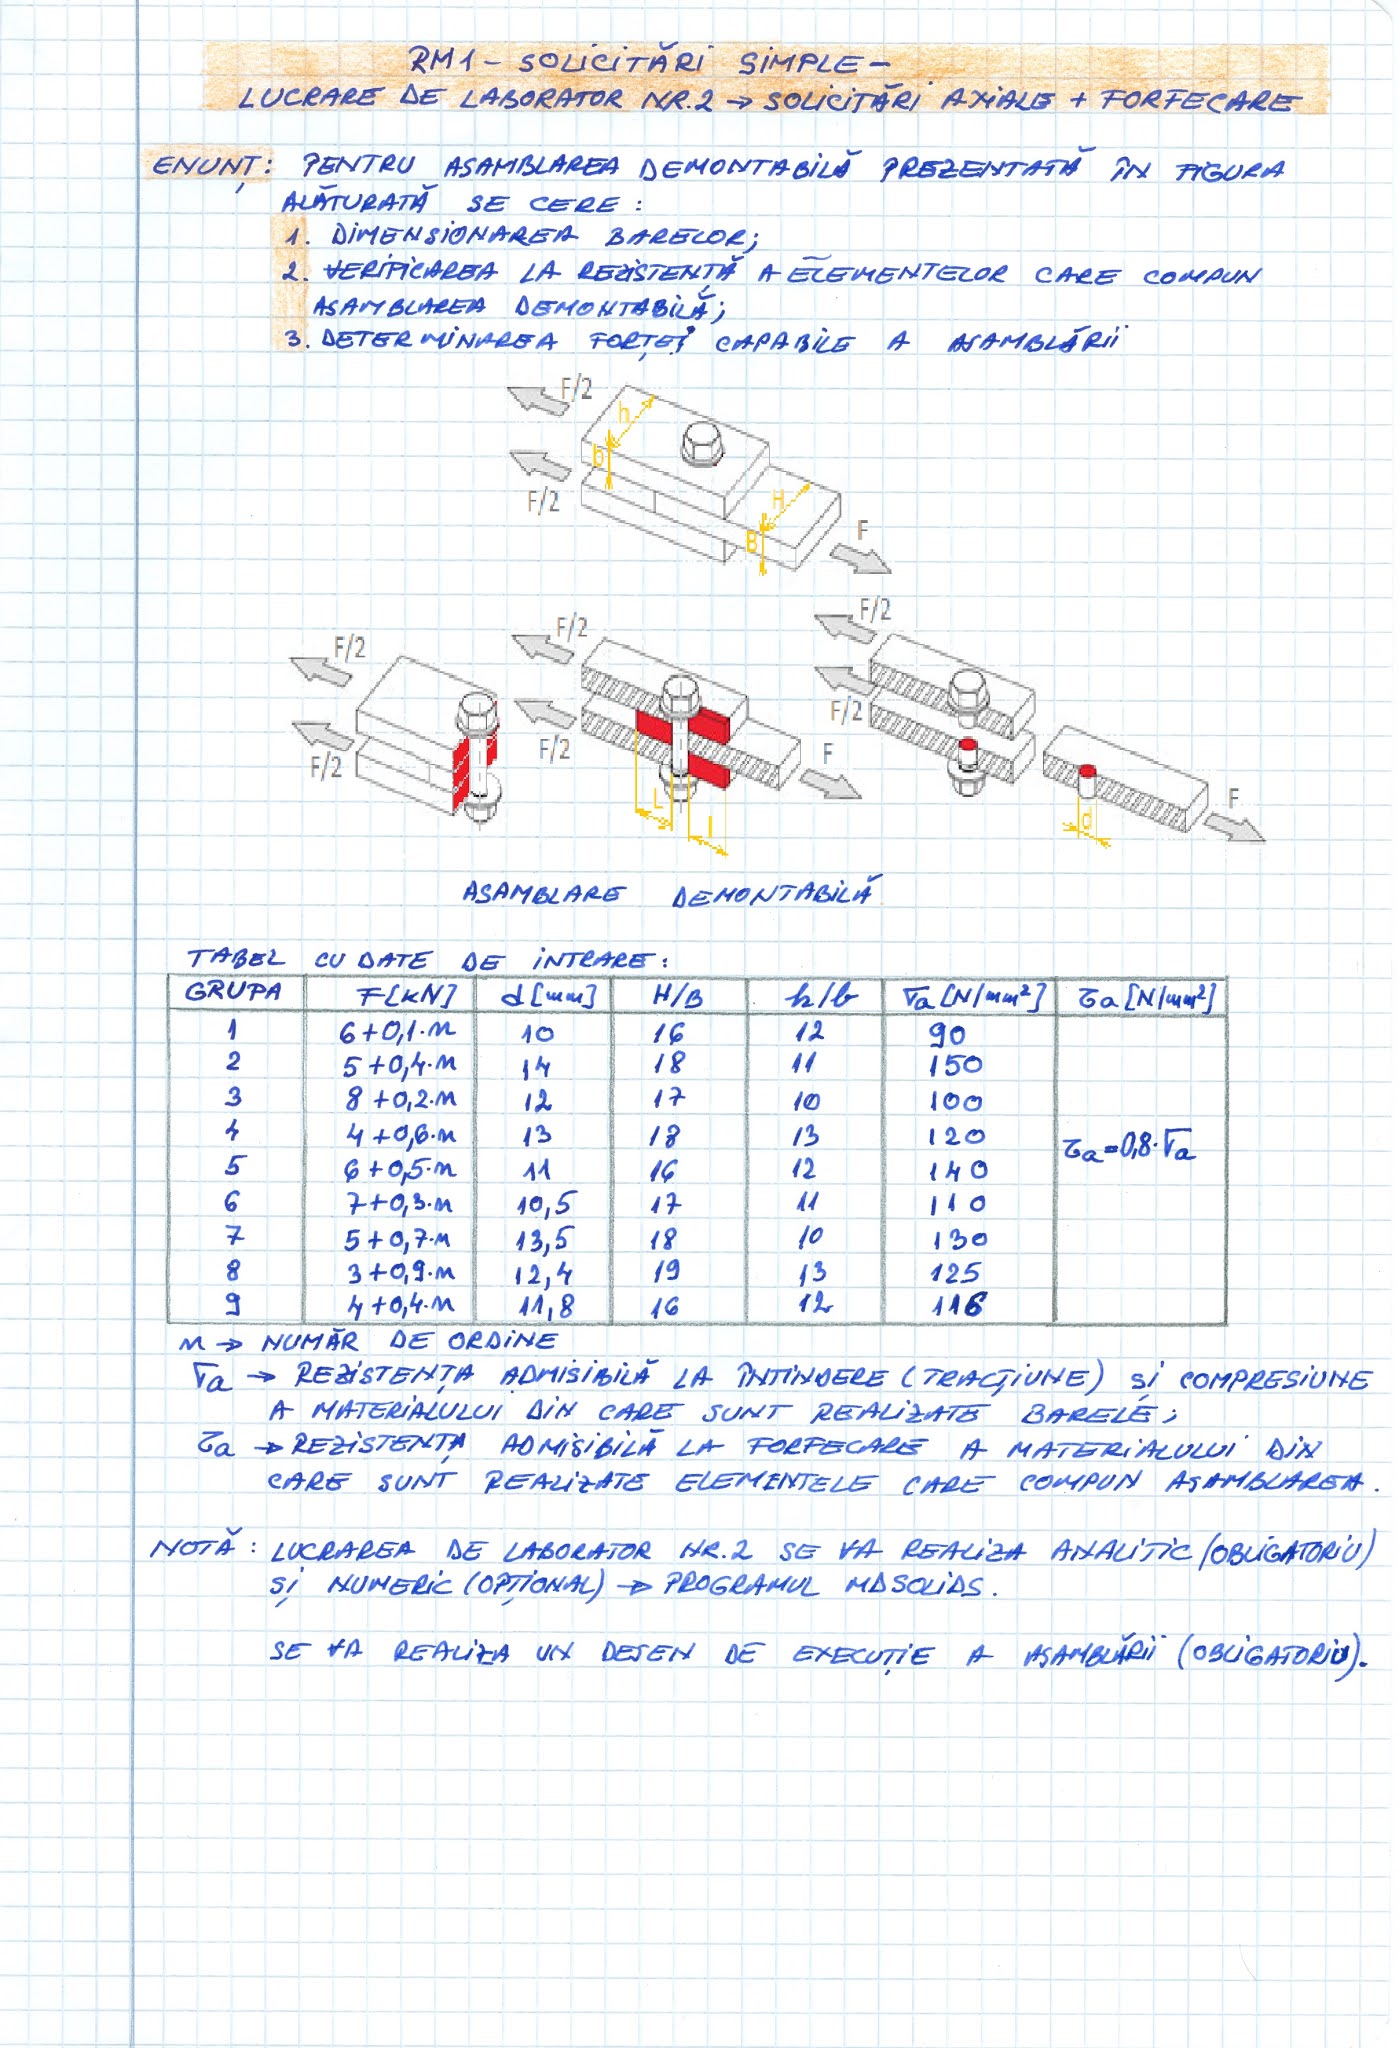 RM1 - SOLICITĂRI SIMPLE -
LUCRARE DE LABORATOR NR.2 → SOLICITĂRI AXIALE + FORFECARE
ENUNȚ: PENTRU ASAMBLAREA DEMONTABILĂ PREZENTATĂ ÎN FIGURA
ALĂTURATĂ SE CERE:
1. DIMENSIONAREA BARELOR;
2. VERIFICAREA LA REZISTENȚĂ A ELEMENTELOR CARE COMPUN
ASAMBLAREA DEMONTABILĂ;
3. DETERMINAREA FORȚEI CAPABILE A ASAMBLĂRII
F/2
h
b
F/2
H
B
F
F/2
F/2
F/2
F/2
L
l
F
F/2
F/2
d
F
ASAMBLARE DEMONTABILĂ
TABEL CU DATE DE INTRARE:
GRUPA F[kN] d[mm] H/B h/b σa[N/mm²] τa[N/mm²]
1 6+0,1·n 10 16 12 90
2 5+0,4·n 14 18 11 150
3 8+0,2·n 12 17 10 100
4 4+0,6·n 13 18 13 120
τa=0,8·σa
5 6+0,5·n 11 16 12 140
6 7+0,3·n 10,5 17 11 110
7 5+0,7·n 13,5 18 10 130
8 3+0,9·n 12,4 19 13 125
9 4+0,4·n 11,8 16 12 116
n → NUMĂR DE ORDINE
σa → REZISTENȚA ADMISIBILĂ LA ÎNTINDERE (TRACȚIUNE) ȘI COMPRESIUNE
A MATERIALULUI DIN CARE SUNT REALIZATE BARELE;
τa → REZISTENȚA ADMISIBILĂ LA FORFECARE A MATERIALULUI DIN
CARE SUNT REALIZATE ELEMENTELE CARE COMPUN ASAMBLAREA.
NOTĂ: LUCRAREA DE LABORATOR NR.2 SE VA REALIZA ANALITIC (OBLIGATORIU)
ȘI NUMERIC (OPȚIONAL) → PROGRAMUL MDSOLIDS.
SE VA REALIZA UN DESEN DE EXECUȚIE A ASAMBLĂRII (OBLIGATORIU).